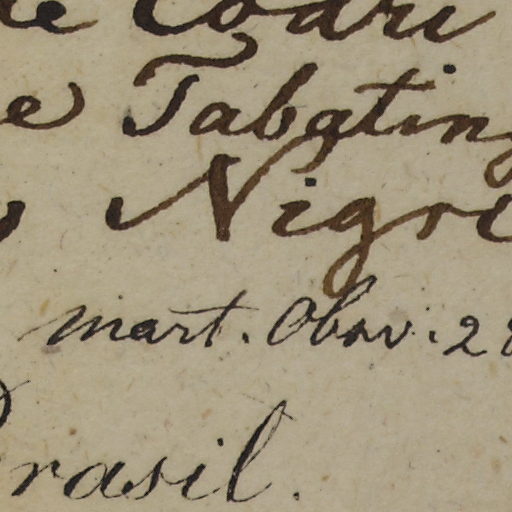 de Coari
e Tabating
Nigri
mart. Obsv. 28
Brasil.